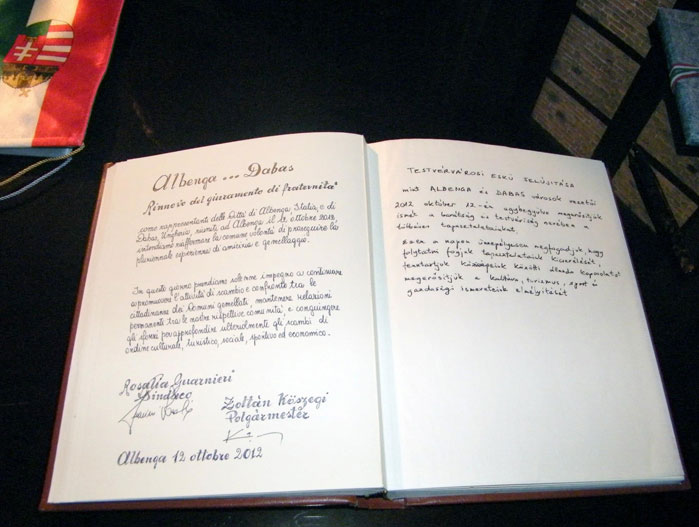 Albenga ... Dabas
Rinnovo del giuramento di fraternità
come rappresentanti delle Città di Albenga, Italia, e di
Dabas, Ungheria, riuniti ad Albenga il 12 ottobre 2012,
intendiamo riaffermare la comune volontà di proseguire la
pluriennale esperienza di amicizia e gemellaggio.
In questo giorno prendiamo solenne impegno a continuare
a promuovere l'attività di scambio e confronto tra le
cittadinanze dei Comuni gemellati, mantenere relazioni
permanenti tra le nostre rispettive comunità, e congiungere
gli sforzi per approfondire ulteriormente gli scambi di
ordine culturale, turistico, sociale, sportivo ed economico.
Rosalia Guarnieri
Sindaco
Zoltán Kőszegi
Polgármester
Albenga 12 ottobre 2012
TESTVÉRVÁROSI ESKÜ MEGÚJÍTÁSA
mint ALBENGA és DABAS városok vezetői
2012 október 12-én egybegyűlve megerősítjük
ismét a barátság és testvériség nevében a
többéves tapasztalatainkat.
Ezen a napon ünnepélyesen megfogadjuk, hogy
folytatni fogjuk tapasztalataink kicserélését
fenntartjuk közösségeink közötti állandó kapcsolatot
megerősítjük a kultúra, turizmus, sport és
gazdasági ismereteink elmélyítését